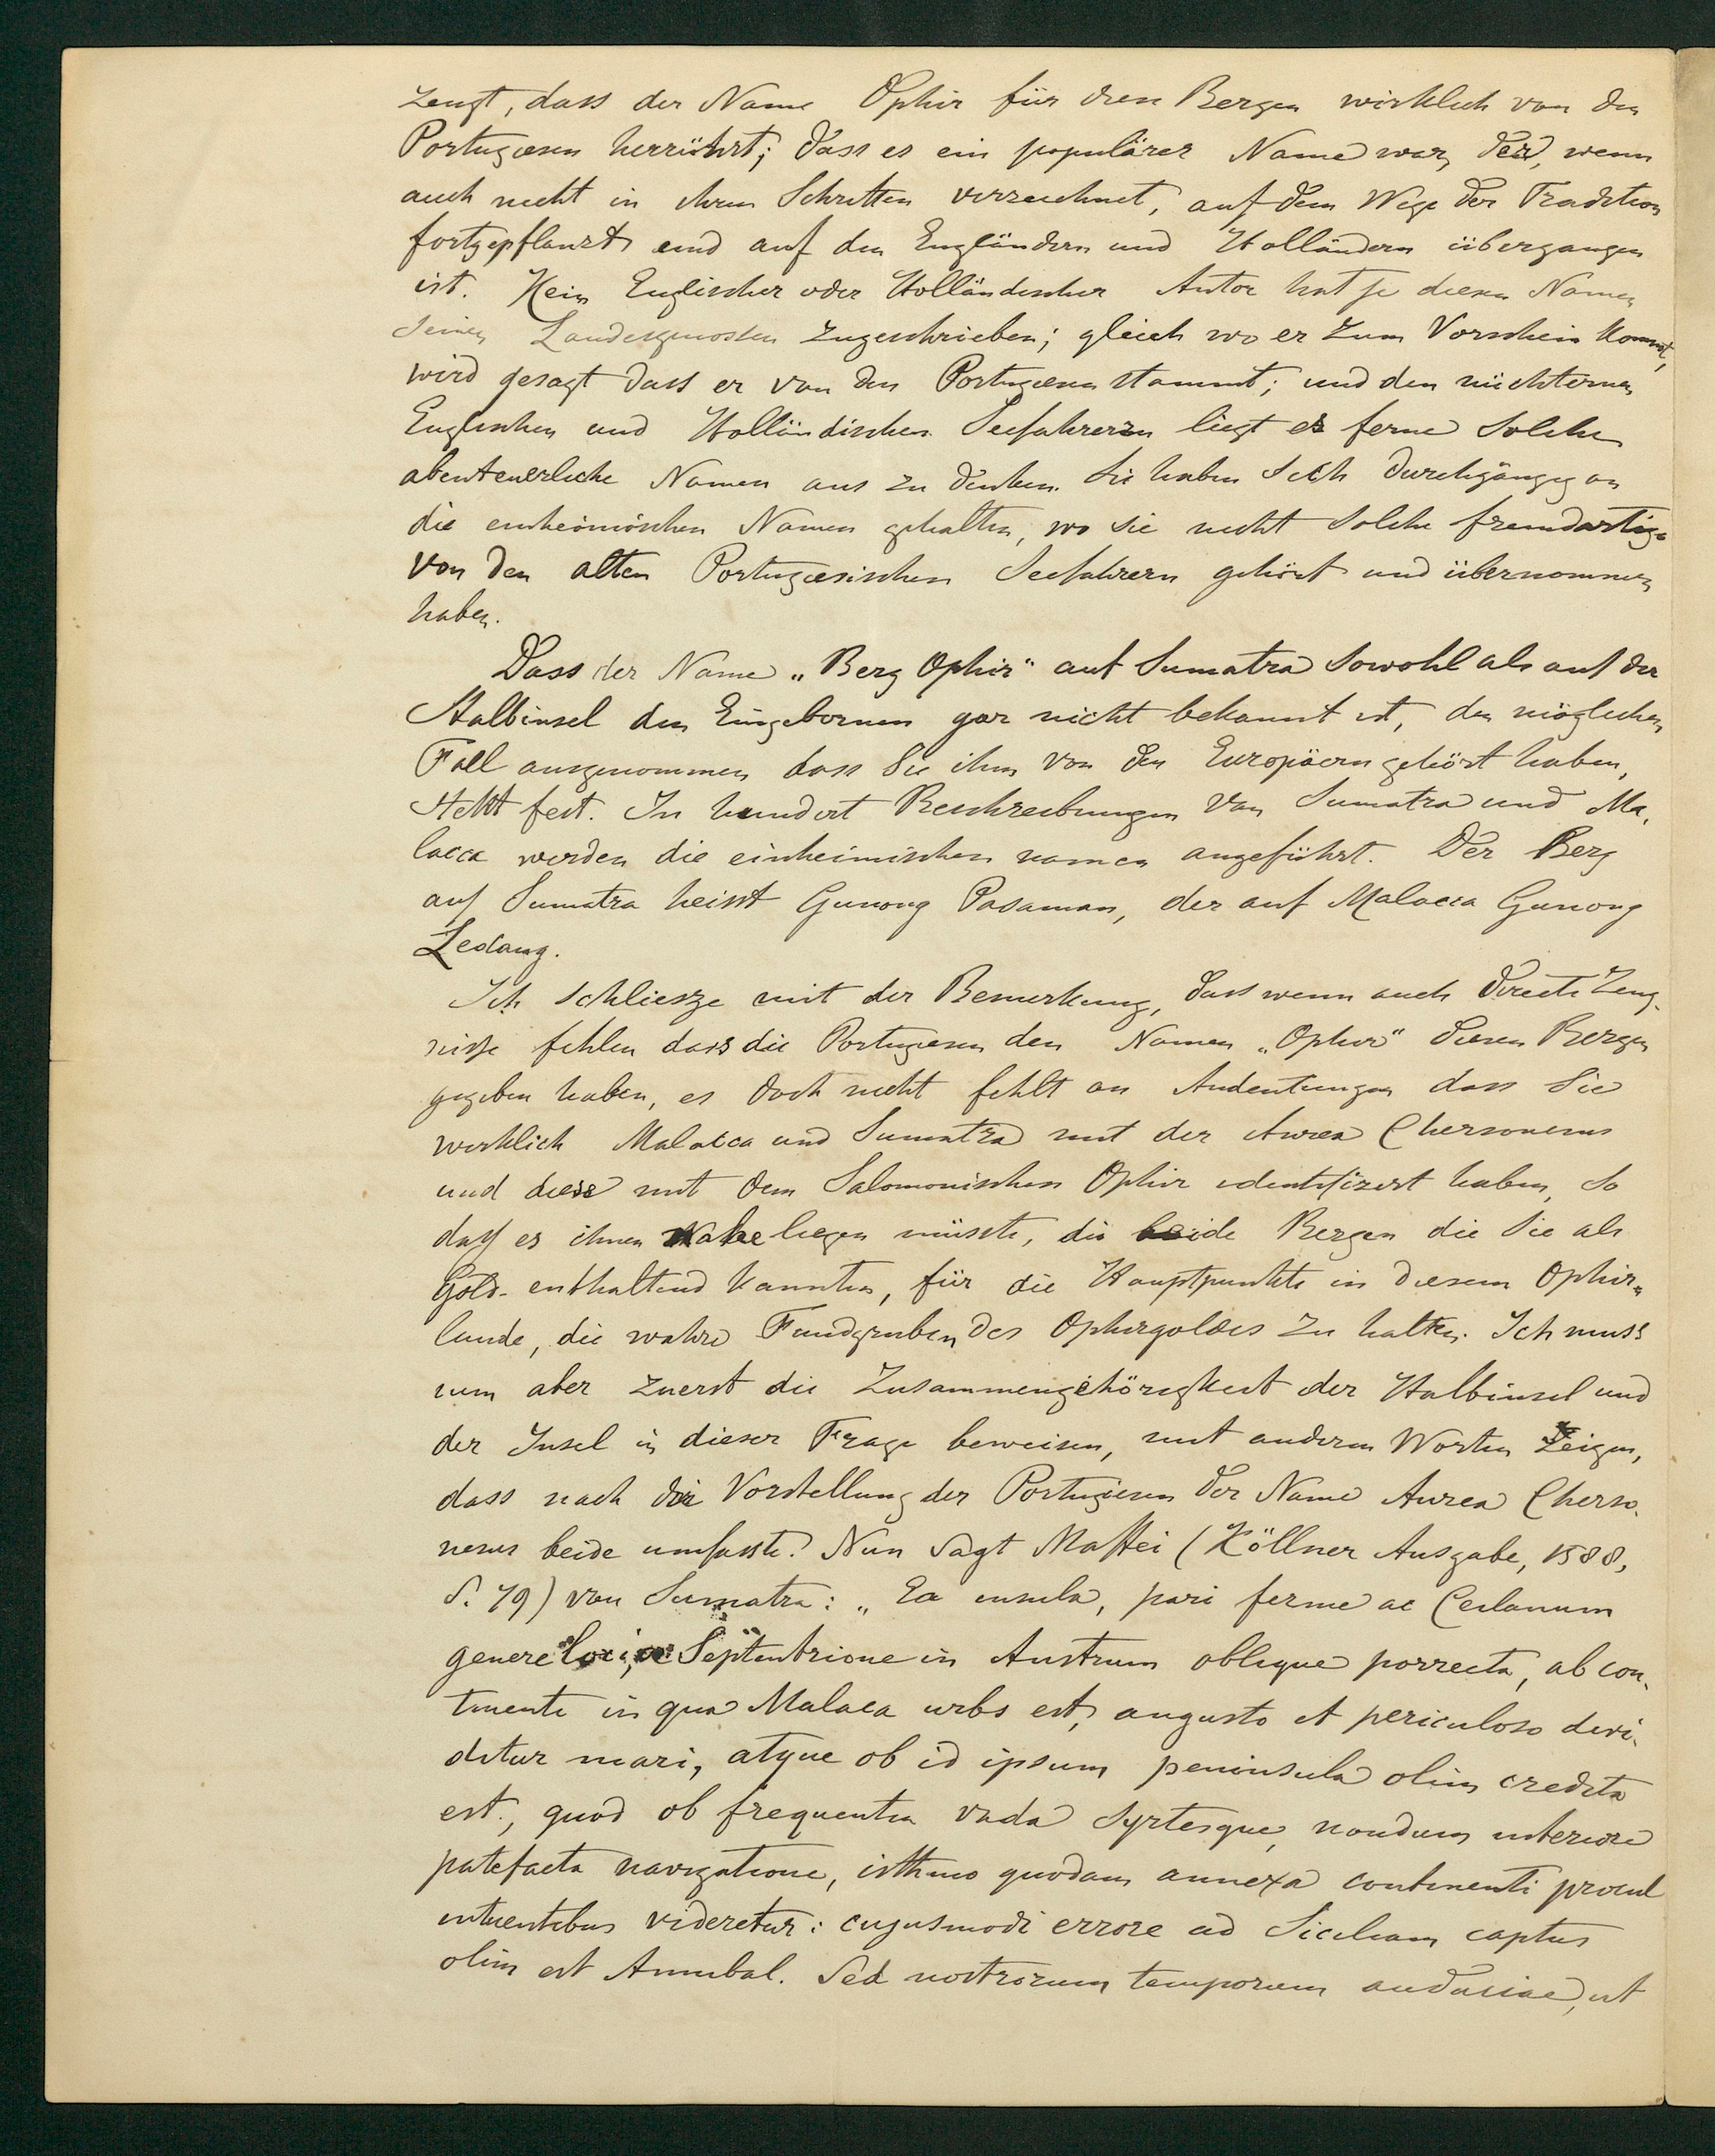 zeugt, dass der Name Ophir für diese Bergen wirklich von den
Portugiesen herrührt; dass es ein populärer Name war, der, wenn
auch nicht in ihren Schriften verzeichnet, auf dem Wege der Tradition
fortgepflanzt und auf den Engländern und Holländern übergangen
ist. Kein Englischer oder Holländischer Autor hat je diesen Namen
seinen Landesgenossen zugeschrieben; gleich wo er zum Vorschein kommt,
wird gesagt dass er von den Portugiesen stammt; und den nüchternen
Englischen und Holländischen Seefahrern liegt es ferne solche
abenteuerliche Namen aus zu denken. Sie haben sich durchgängig an
die einheimischen Namen gehalten, wo sie nicht solche fremdartige
von den alten Portugiesischen Seefahrern gehört und übernommen
haben.
Dass der Name „Berg Ophir" auf Sumatra sowohl als auf der
Halbinsel den Eingebornen gar nicht bekannt ist, den möglichen
Fall ausgenommen dass sie ihm von den Europäern gehört haben,
steht fest. In hundert Beschreibungen von Sumatra und Ma-
lacca werden die einheimischen namen angeführt. Der Berg
auf Sumatra heisst Gunong Pasaman, der auf Malacca Gunong
Ledang.
Ich schliesze mit der Bemerkung, dass wenn auch directe Zeug-
nisse fehlen dass die Portugiesen den Namen „Ophir" diesen Bergen
gegeben haben, es doch nicht fehlt an Andeutungen dass sie
wirklich Malacca und Sumatra mit der Aurea Chersonesus
und diese mit dem Salomonischen Ophir identifizirt haben, so
dass es ihnen nahe liegen müsste, die beide Bergen die sie als
Gold-enthaltend kannten, für die Hauptpunkte in diesem Ophir-
lande, die wahre Fundgruben des Ophirgoldes zu halten. Ich muss
nun aber zuerst die Zusammengehörigkeit der Halbinsel und
der Insel in dieser Frage beweisen, mit anderen Worten zeigen,
dass nach der Vorstellung der Portugiesen der Name Aurea Cherso-
nesus beide umfasste. Nun sagt Maffei (Köllner Ausgabe, 1588,
S. 79) von Sumatra: „Ea insula, pari ferme ac Ceilanum
genere loci, a Septentrione in Austrum oblique porrecta, ab con-
tinente in qua Malaca urbs est, angusto et periculoso divi-
ditur mari, atque ob id ipsum peninsula olim credita
est, quod ob frequentia vada Syrtesque, nondum interiore
patefacta navigatione, isthmo quodam annexa continenti procul
intuentibus videretur: cujusmodi errore ad Siciliam captus
olim est Annibal. Sed nostrorum temporum audaciae, ut